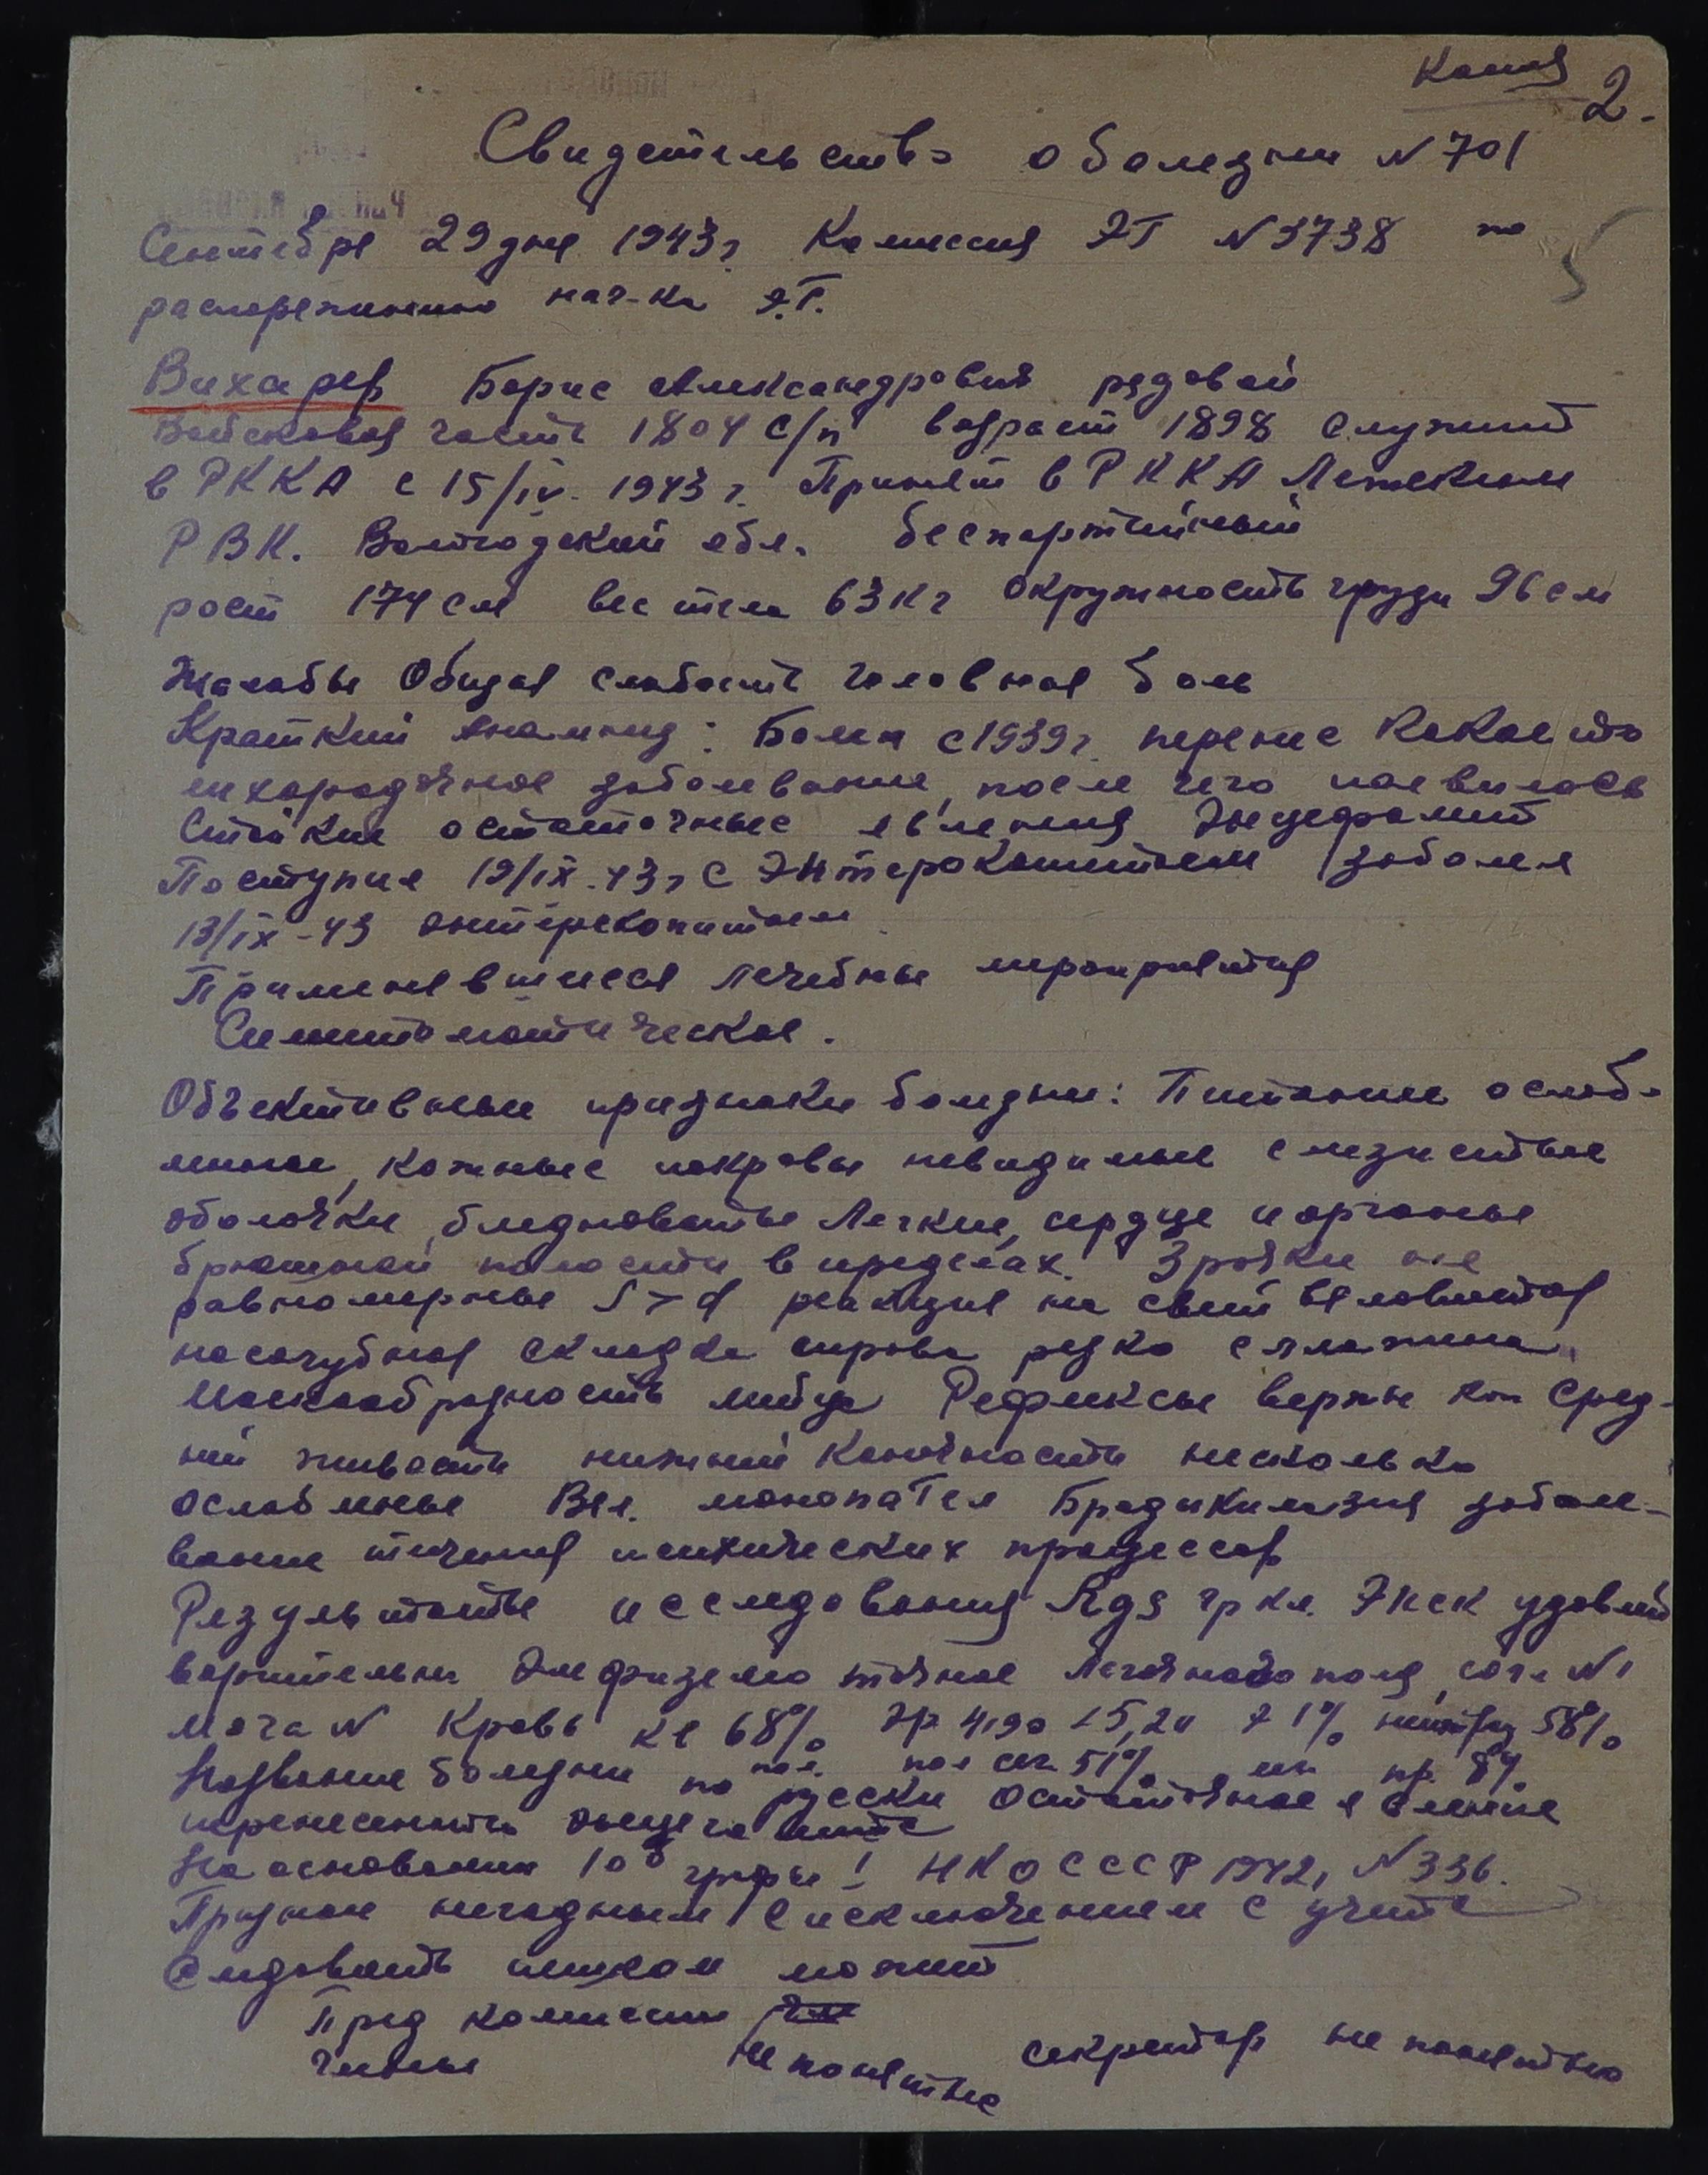 Копия
2.
Свидетельство о болезни N 701
Сентября 29 дня 1943 г. Комиссия ЭГ N 3738 по
распоряжению нач-ка Э.Г.
Вихарев Борис Александрович рядовой
Войсковая часть 1804 с/п возраст 1898 служит
в РККА с 15/IV. 1943 г. Принят в РККА Лежским
РВК. Вологодский обл. беспартийный
рост 174 см вес тела 63 кг окружность груди 96 см
Жалобы Общая слабость головная боль
Краткий анамнез: Болен с 1939 г. перенес какое то
лихорадочное заболевание, после чего появилось
стойкие остаточные явления Энцефалит
Поступил 19/IX.43 г с Энтероколитом заболел
13/IX-43 энтероколитом
Применявшиеся лечебные мероприятия
Симптоматическое.
Объективные признаки болезни: Питание ослаб-
ленное, кожные покровы невидимые слизистые
оболочки, бледноватые Легкие, сердце и органы
брюшной полости в пределах. Зрачки не
равномерные S > d реакция на свет вяловатая
носогубная складка справа резко сглажена
Маскообразность лица Рефлексы верхне кон сред-
ний живости нижний конечности несколько
ослабленые Вял. Брадикинезия заболе-
вание течения психических процессов
Результаты исследования Rgs гр кл. Экск удовлет
ворительна Эмфизематочное легочного поля N 1
моча N Кровь 68% Эр 4190 L 5,2 1% 58%
Название болезни по русски Остаточное явление
перенесенного энцефалита
На основании 10 графы I НКО СССР 1942, N 336.
Признан негодным с исключением с учета
Следовать пешком может
Пред комиссии
Члены Не понятно секретарь не понятно